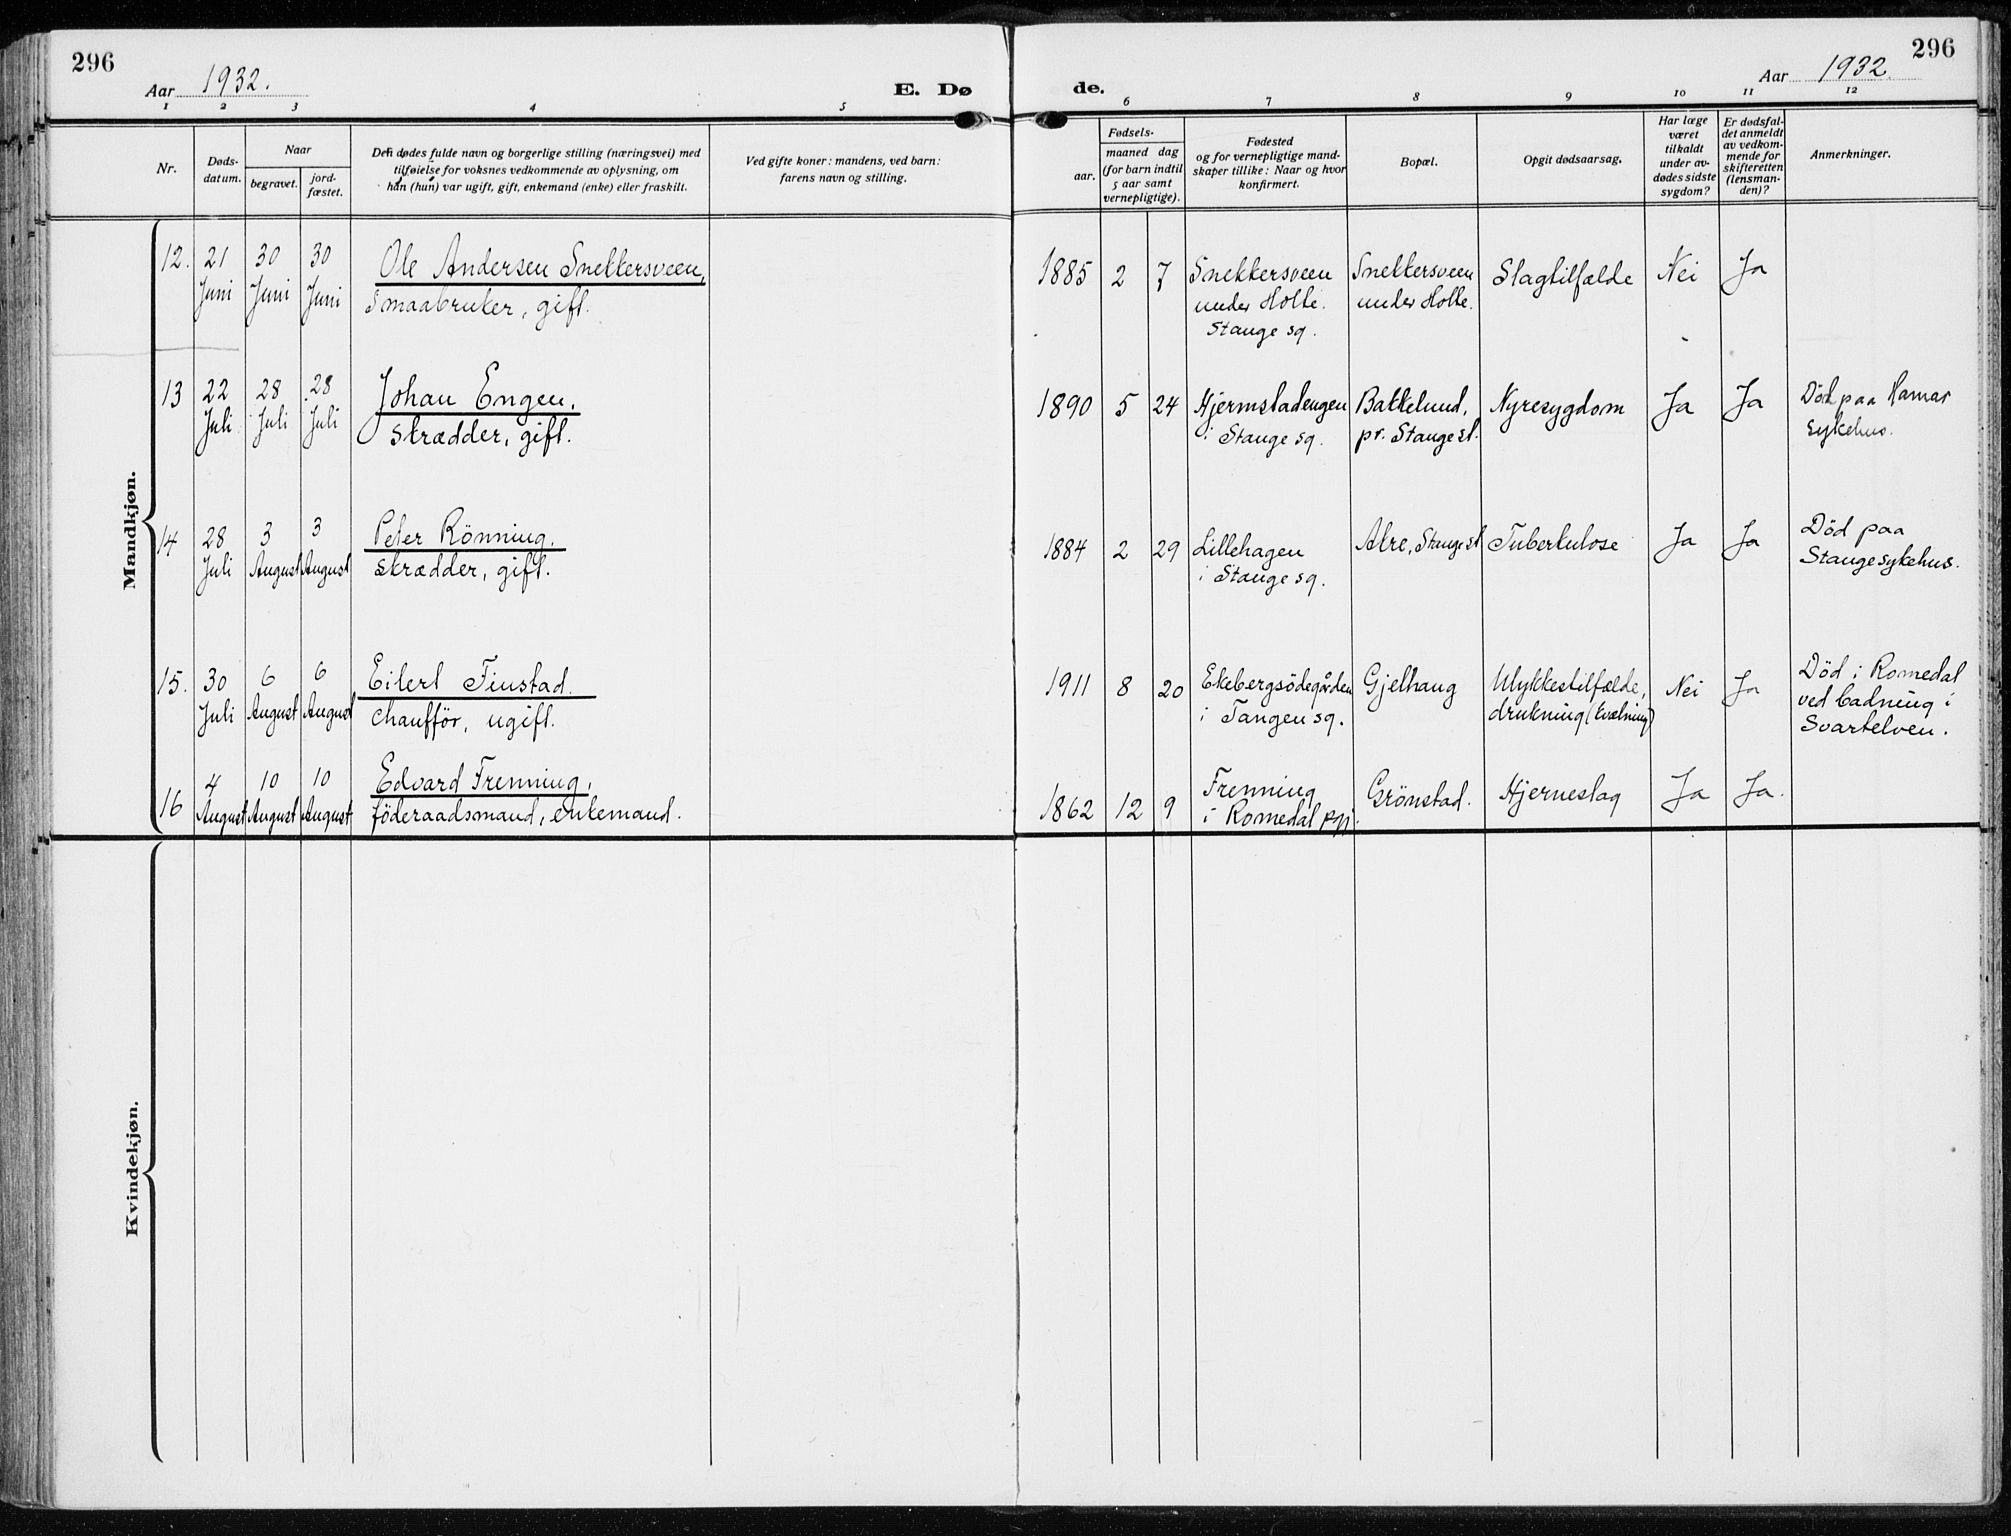 296
Aar 1932.
E. Dø
de.
Aar 1932
296
1 2 3 4 5
6 7 8 9 10 11 12
Nr.
Døds-
datum.
Naar
begravet.
jord-
fæstet.
Den dødes fulde navn og borgerlige stilling (næringsvei) med
tilføielse for voksnes vedkommende av oplysning, om
han (hun) var ugift, gift, enkemand (enke) eller fraskilt.
Ved gifte koner: mandens, ved barn:
farens navn og stilling.
Fødsels-
aar.
maaned dag
(for barn indtil
5 aar samt
vernepligtige).
Fødested
og for vernepligtige mand-
skaper tillike: Naar og hvor
konfirmert.
Bopæl.
Opgit dødsaarsag.
Har læge
været
tilkaldt
under av-
dødes sidste
sygdom?
Er dødsfal-
det anmeldt
av vedkom-
mende for
skifteretten
(lensman-
den)?
Anmerkninger.
Mandkjøn.
12. 21 30 30 Ole Andersen Snekkersveen,
Juni Juni Juni Smaabruker, gift.
1885 2 7 Snekkersveen Snekkersveen Slagtilfælde Nei Ja
under Holte. under Holte.
Stange sg.
13 22 28 28 Johan Engen,
Juli Juli Juli skrædder, gift.
1890 5 24 Hjermstadengen Bakkelund, Nyresygdom Ja Ja Död paa Hamar
i Stange sg. pr. Stange st. sykehus.
14 28 3 3 Peter Rönning,
Juli August August skrædder, gift.
1884 2 29 Lillehagen Alre, Stange st Tuberkulose Ja Ja Död paa
i Stange sg. Stange sykehus.
15. 30 6 6 Eilert Finstad
Juli August August chauffør, ugift.
1911 8 20 Ekebergsödegården Gjelhaug Ulykkestilfælde, Nei Ja Död i Romedal
i Tangen sg. drukning (kvælning) ved badning i
Svartelven.
16 4 10 10 Edvard Frenning,
August August August föderaadsmand, enkemand.
1862 12 9 Frenning Grönstad. Hjerneslag Ja Ja.
i Romedal pgj.
Kvindekjøn.